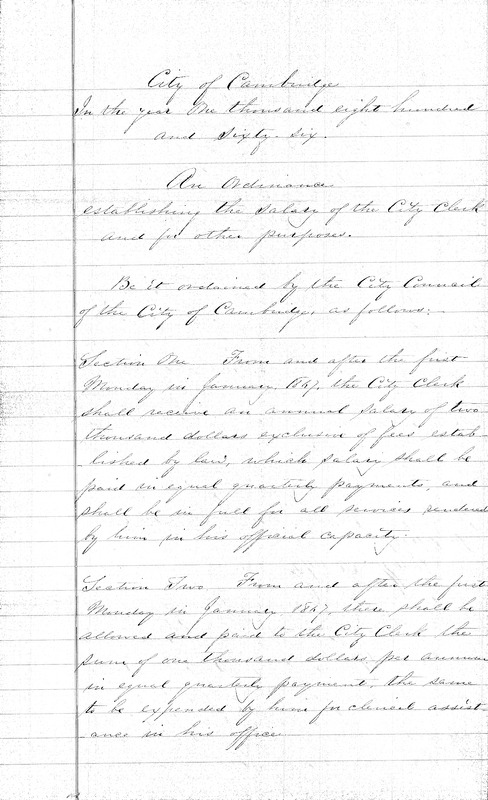 City of Cambridge
In the year One thousand eight hundred
and Sixty-six.
An Ordinance
establishing the salary of the City Clerk
and for other purposes.
Be it ordained by the City Council
of the City of Cambridge, as follows:-
Section One From and after the first
Monday in January, 1867, the City Clerk
shall receive an annual salary of two
thousand dollars exclusive of fees estab-
-lished by law, which salary shall be
paid in equal quarterly payments, and
shall be in full for all services rendered
by him in his official capacity.
Section Two From and after the first
Monday in January 1867, there shall be
allowed and paid to the City Clerk the
sum of one thousand dollars per annum
in equal quarterly payment, the same
to be expended by him for clerical assist
-ance in his office